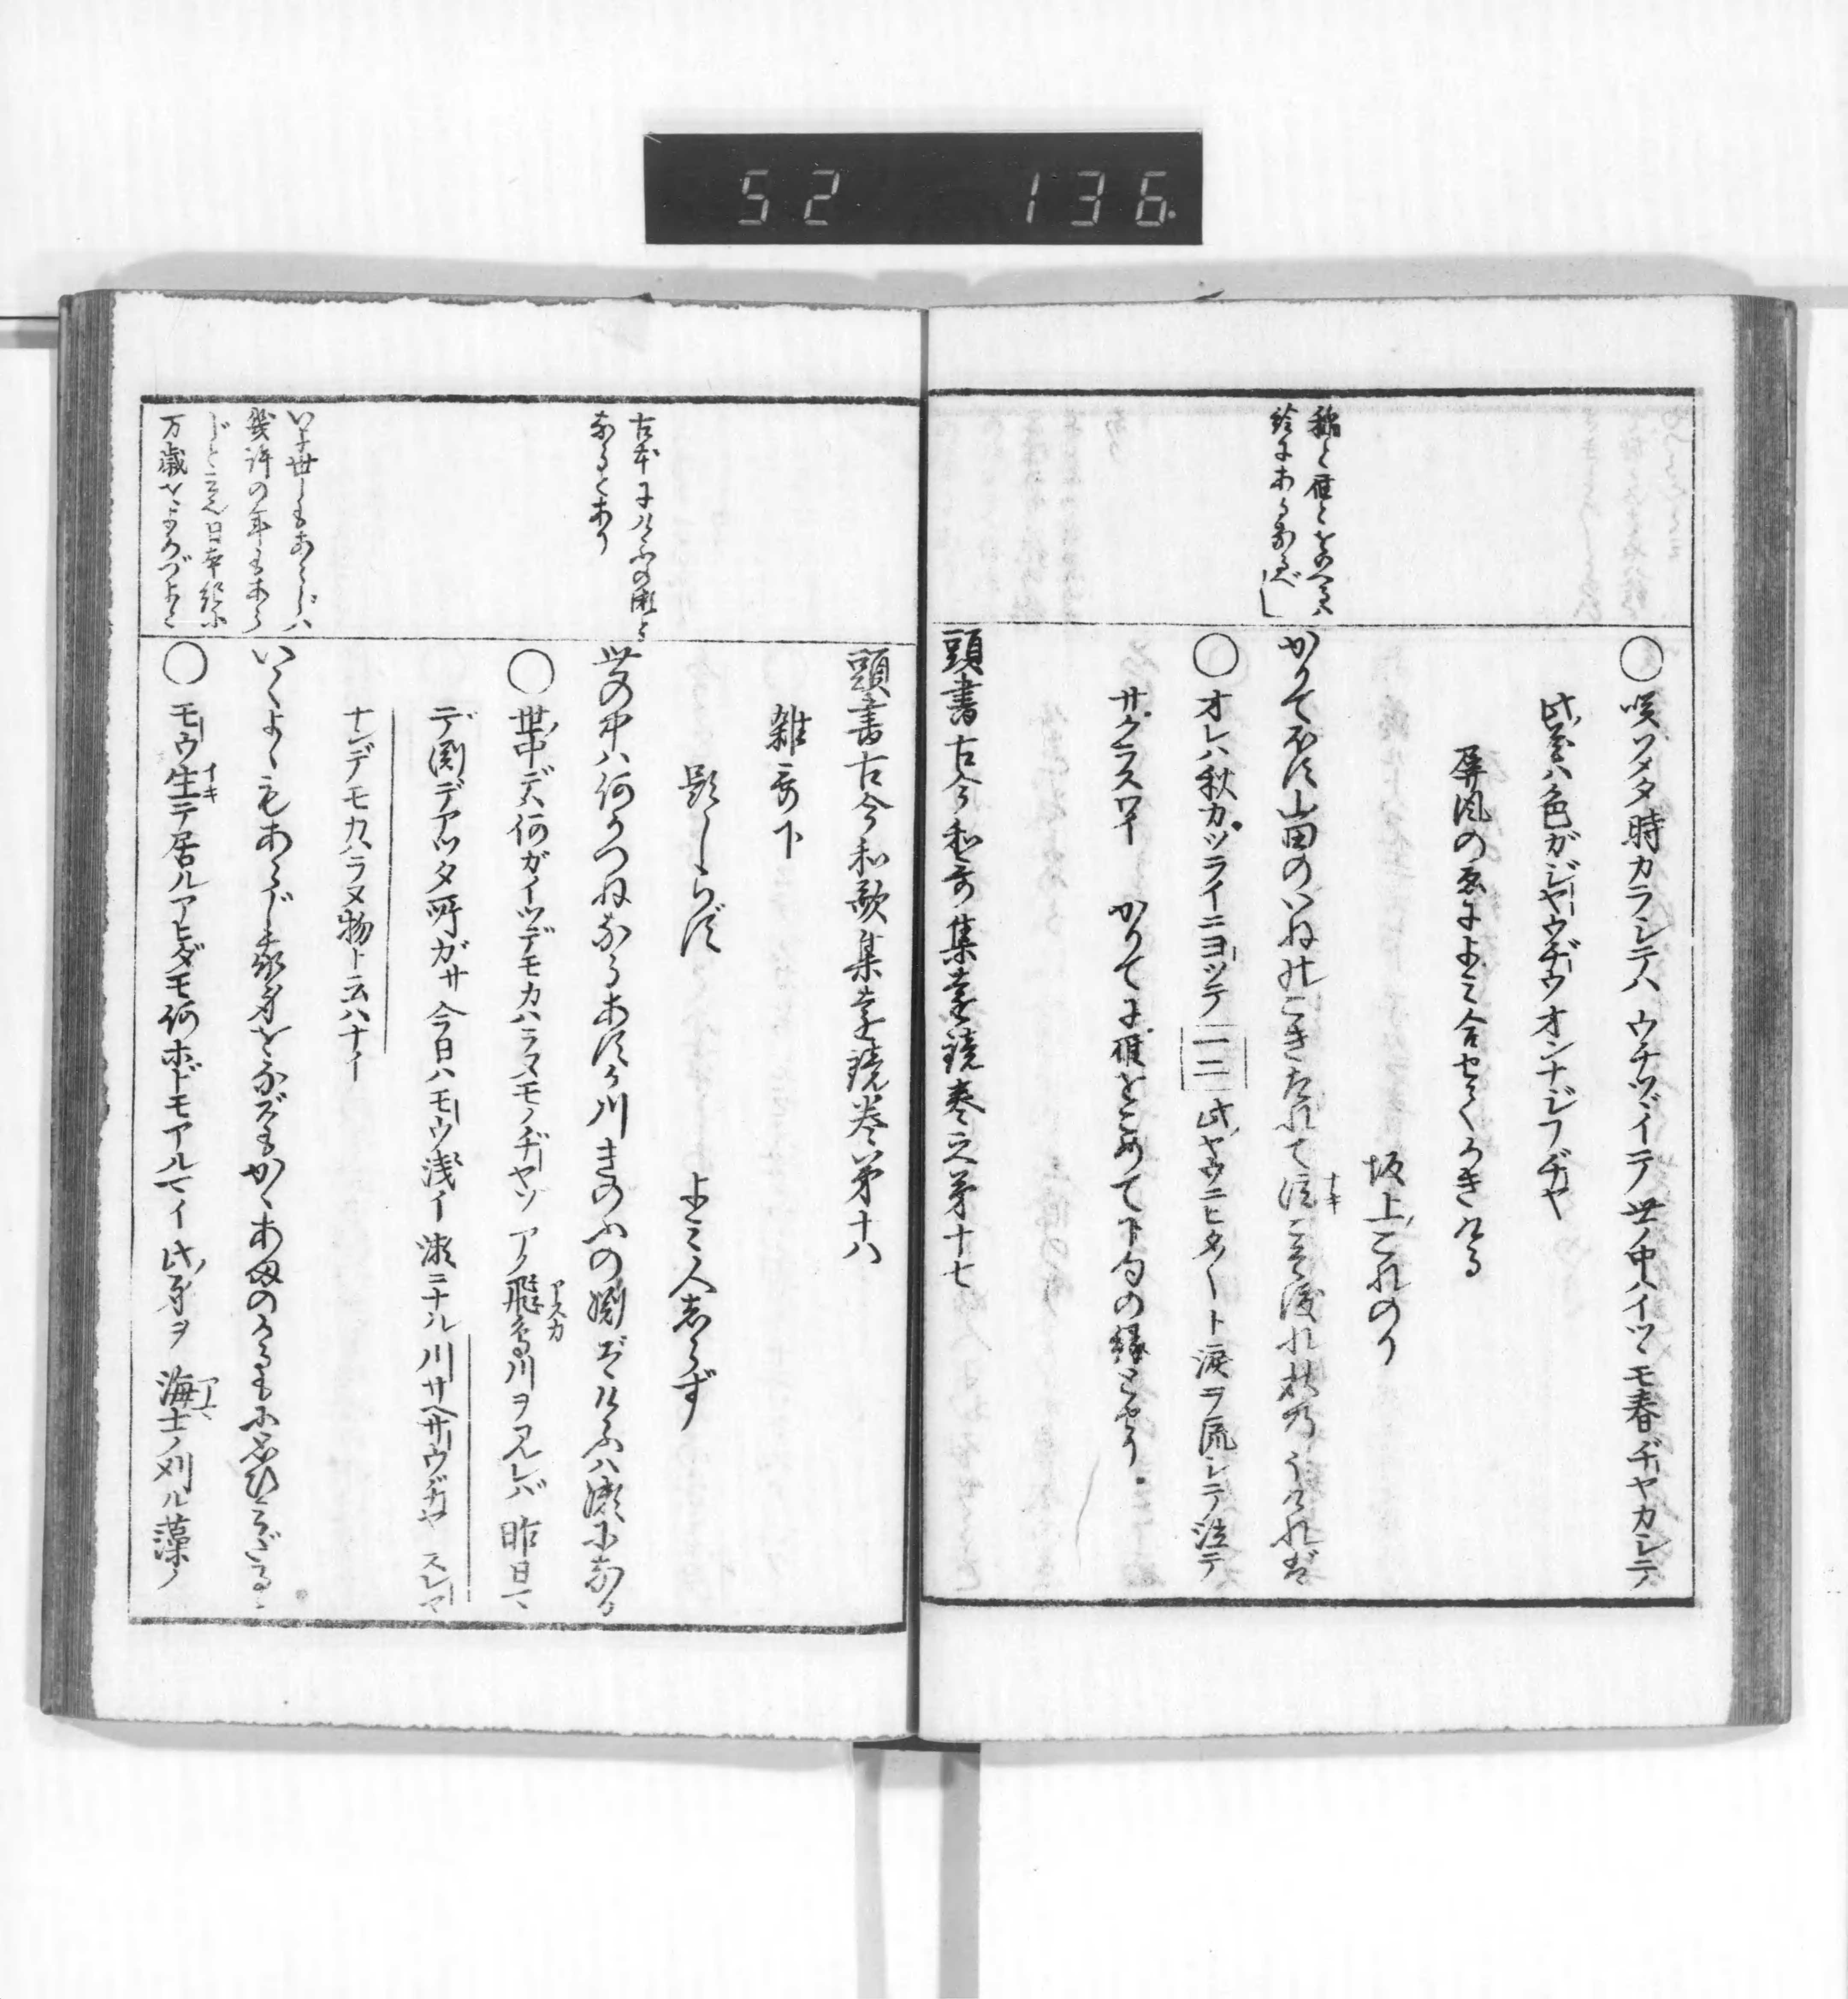 52 136
稲と雁とをあへるハ
絵にあるなるべし
〇咲ソメタ時カラシテハ ウチツヾイテ世ノ中ハイツヽモ春ヂヤカシテ
此花ハ色ガジヤウヂウオンナジフヂヤ
屏風のゑによみ合せてかきける
坂上これのり
かりてほす山田のいねのこきたれて泣こそ渡れ秋のうければ
ナキ
〇オレハ秋カツライニヨツテ一二此ヤウニヒタ〳〵ト涙ヲ流シテ泣テ
サクラスワイ かりてに雁をこめて下句の縁とせり
頭書古今和哥集遠鏡巻之第十七
頭書古今和歌集遠鏡巻第十八
雑哥下
題しらず
よみ人志らず
古本にけふの瀬と
なるとあり
世の中ハ何かつねなるあすか川きのふの淵ぞけふハ瀬になる
〇世ノ中デハ何ガイツデモカハラヌモノヂヤゾ アノ飛鳥川ヲミレバ 昨日マ
アスカ
デ淵デアツタ所ガサ 今日ハモウ浅イ瀬ニナル川サヘサウヂヤ スレヤ
ナンデモカハラヌ物ト云ハナイ
いく世しもあらじハ
幾許の年もあら
じと云也日本紀に
万歳をよろづよと
いくよしもあらじ我身をなぞもかくあまのかるもに思ひみだるゝ
〇モウ生テ居ルアヒダモ何ホドモアルマイ此身ヲ 海士ノ刈ル藻ノ
イキ
アマ